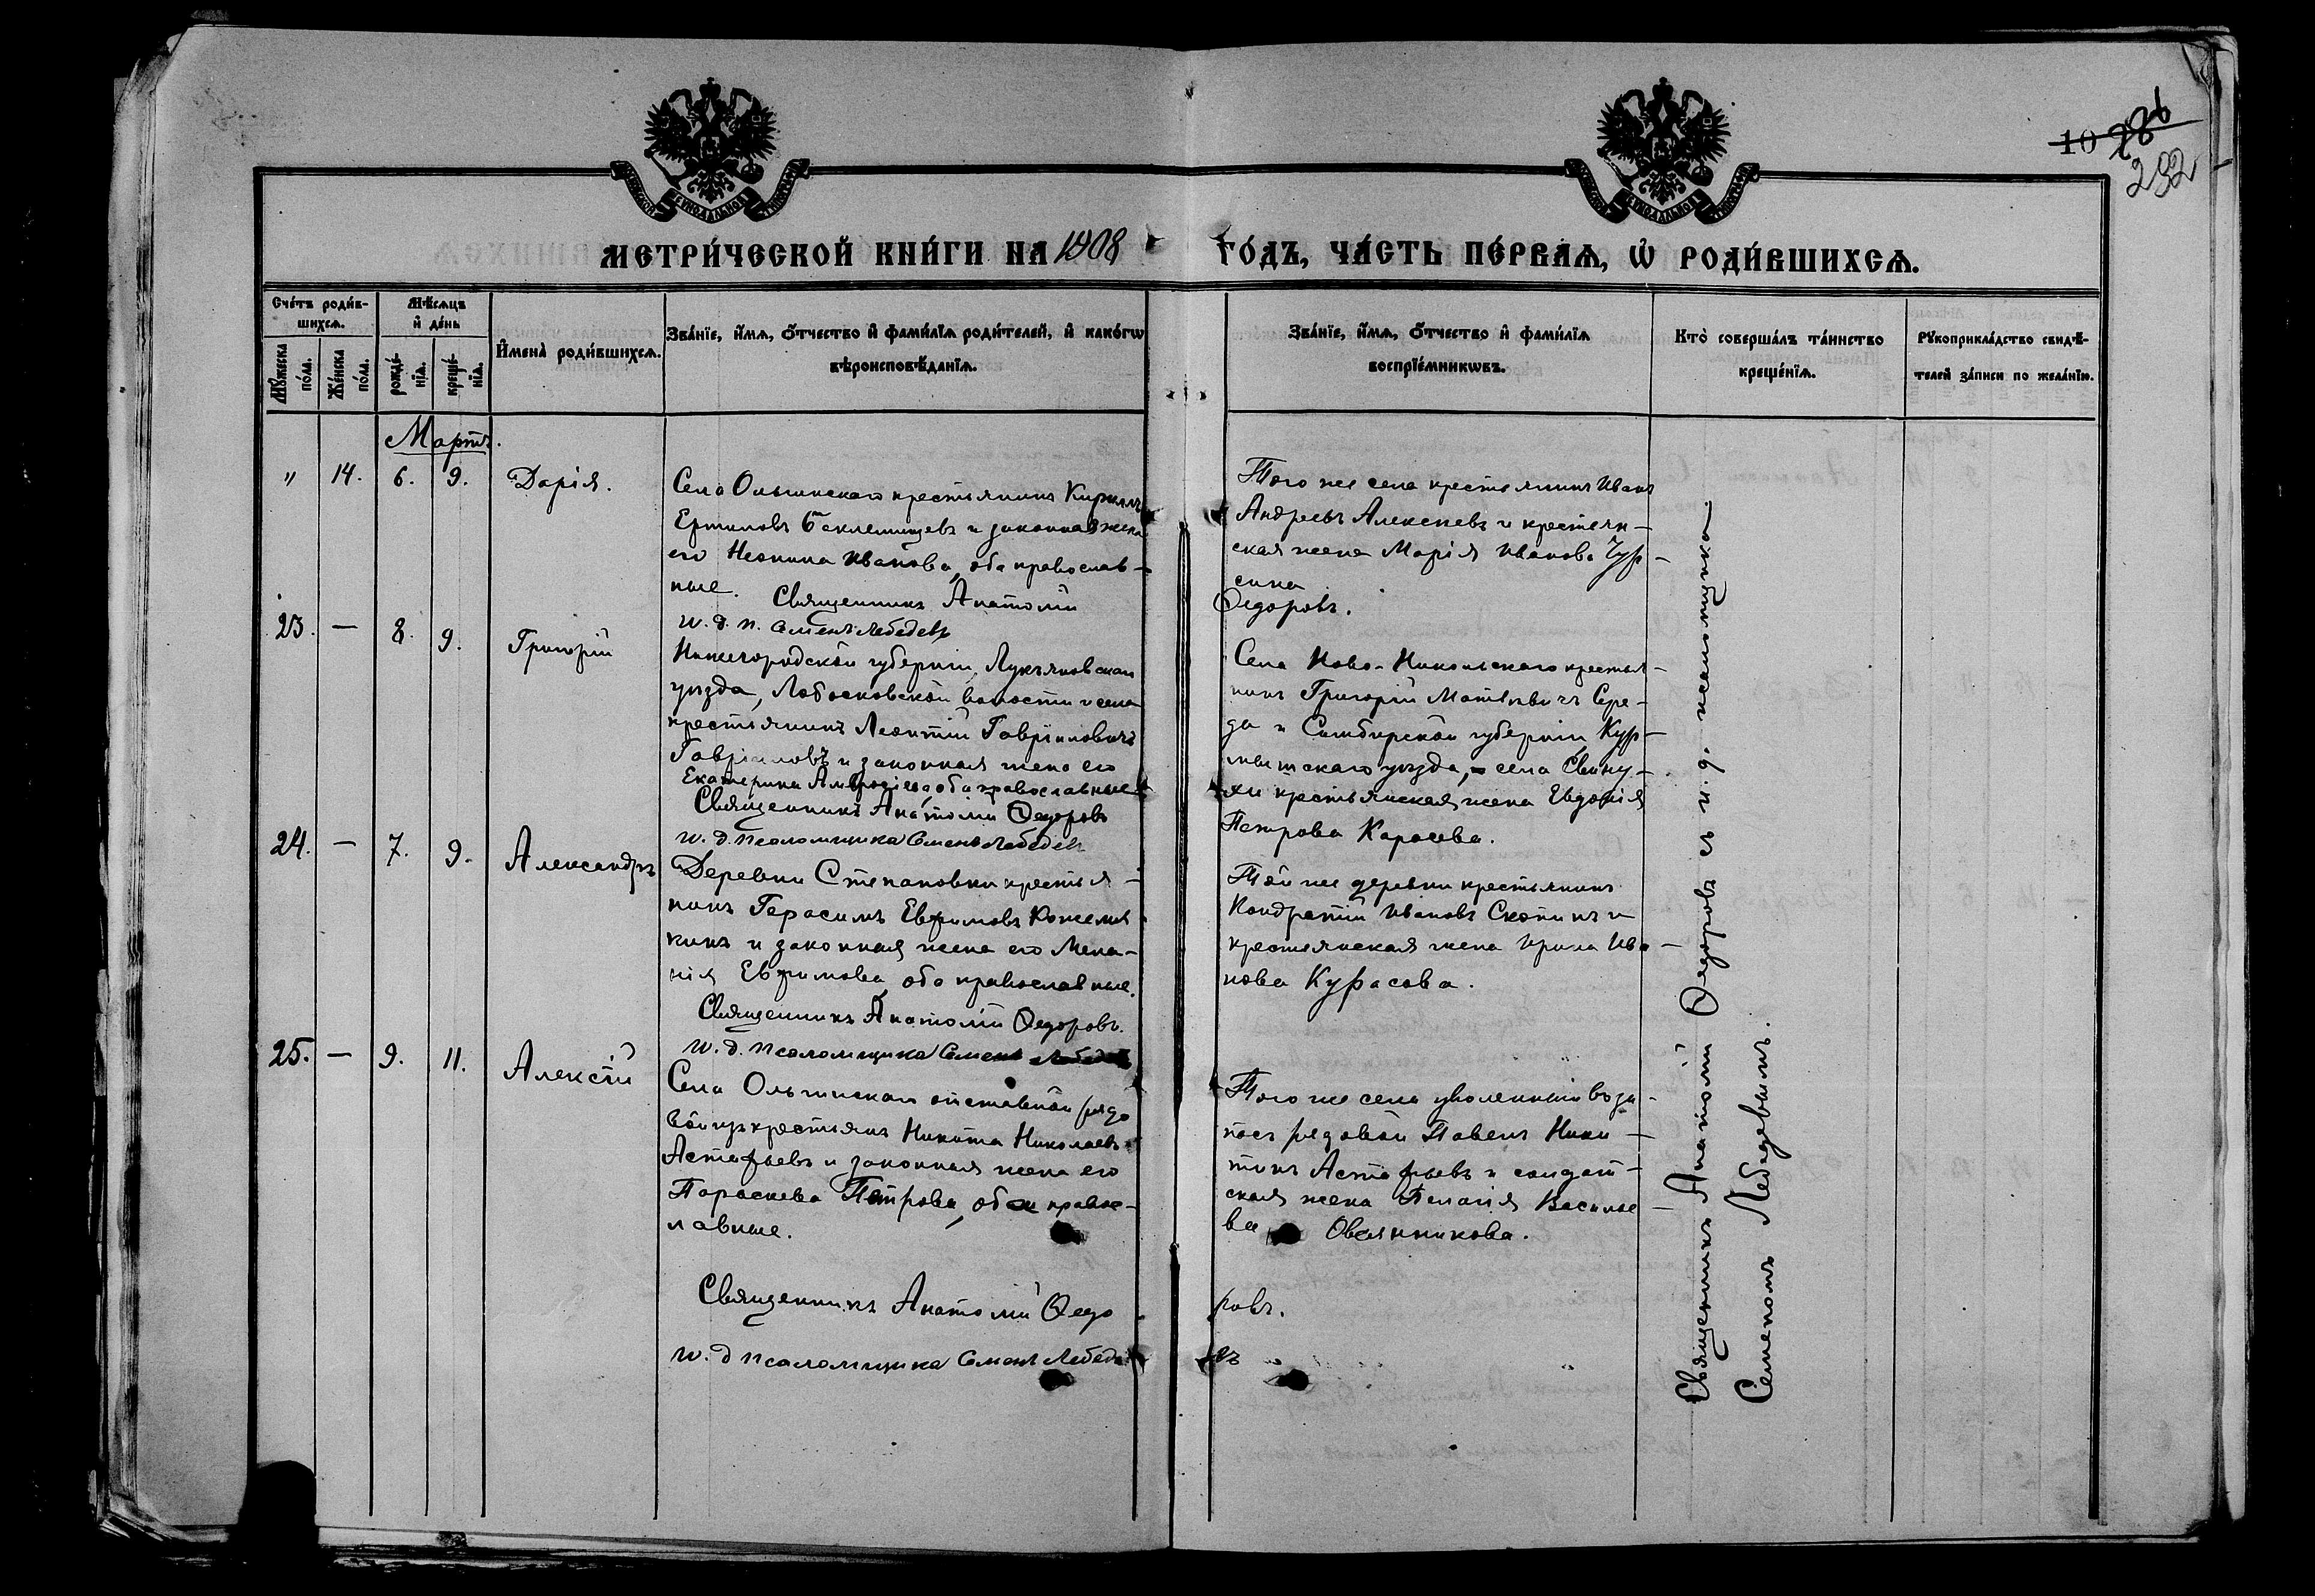 10 286
292
МЕТРИ́ЧЕСКОЙ КНИ́ГИ НА 1908 ГО́ДЪ, ЧА́СТЬ ПЕ́РВАѦ, Ѽ РОДИ́ВШИХСѦ.
Сче́тъ роди́в-
шихсѧ.
Мѣ́сѧцъ
и҆ де́нь
Мꙋ́жеска по́ла.
Же́нска по́ла.
рожде́-нїѧ.
креще́-нїѧ.
И҆мена̀ роди́вшихсѧ.
Зва́нїе, и҆́мѧ, ѻ҆́тчество и҆ фами́лїѧ роди́телей, и҆ како́гѡ
вѣроисповѣ́данїѧ.
Зва́нїе, и҆́мѧ, ѻ҆́тчество и҆ фами́лїѧ
воспрїе́мникѡвъ.
Кто̀ соверша́лъ та́инство
креще́нїѧ.
Рꙋкоприкла́дство свидѣ́-
телей за́писи по жела́нїю.
Мартъ.
" 14. 6. 9. Дарія.
Села Ольгинскаго крестьянинъ Кириллъ
Ермиловъ и законная жена
его Неонила Иванова, оба православ-
ные. Священникъ Анатолій
и. д. п. Семенъ Лебедевъ
Того же села крестьянинъ Иванъ
Андреевъ Алексѣевъ и крестьян-
ская жена Марія Иванова Чур-
сина
Ѳедоровъ.
23. — 8. 9. Григорій
Нижегородской губерніи, Лукояновскаго
уѣзда, Лобасковской волости и села
крестьянинъ Леонтій Гавріиловичъ
Гавріиловъ и законная жена его
Екатерина Амвросіева, оба православные
Священникъ Анатолій Ѳедоровъ
и. д. псаломщика Семенъ Лебедевъ
Села Ново-Никольскаго крестья-
нинъ Григорій Матвѣевичъ Сере-
да и Симбирской губерніи, Кур-
мышскаго уѣзда, села
крестьянская жена Евдокія
Петрова Карасева.
24. — 7. 9. Александръ
Деревни Степановки крестья-
нинъ Герасимъ Евфимовъ Кожемя-
кинъ и законная жена его Мела-
нія Евфимова, оба православные.
Священникъ Анатолій Ѳедоровъ.
и. д. псаломщика Семенъ Лебедевъ
Той же деревни крестьянинъ
Кондратій Ивановъ Скопинъ и
крестьянская жена Ирина Ива-
нова Курасова.
25. — 9. 11. Алексѣй
Села Ольгинскаго отставной рядо
вой изъ крестьянъ Никита Николаевъ
Астафьевъ и законная жена его
Параскева Петрова, оба правос-
лавные.
Священникъ Анатолій Ѳедо
и. д псаломщика Семенъ Лебеде
Того же села уволенный въ за-
пасъ рядовой Павелъ Ники-
тинъ Астафьевъ и солдат-
ская жена Пелагія Василье-
ва Овсянникова.
ровъ.
въ
Священникъ Анатолій Ѳедоровъ съ и. д. псаломщика
Семеномъ Лебедевымъ.